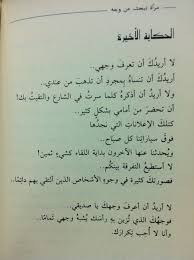 مرآة تبحث عن وجه
الحكاية الأخيرة
لا أريدُكَ أن تعرفَ وجهي..
لا أريدُكَ أن تنساهُ بمجردِ أن تذهبَ من عندي.
ولا أريدُ أن أذكرهُ كلما سرتُ في الشارع والتقيتُ بك!
أن تحضرَ من أمامي بشكلٍ كثير..
كتلكَ الإعلانات التي نجدُها
فوقَ سياراتِنا كلَّ صباح..
ويُحدثنا عنها الآخرون بداية اللقاء كشيءٍ ثمين!
لا أستطيعُ التفرقة بينكم..
فصورتك كثيرة في وجوه الأشخاص الذين ألتقي بهم دائماً..
لا أريدُ أن أعرفَ وجهكَ يا صديقي..
فوجهُكَ الذي تُزين بهِ رأسكَ يُشبهُ وجهي تماماً..
وأنا لا أُحب تِكراركَ.